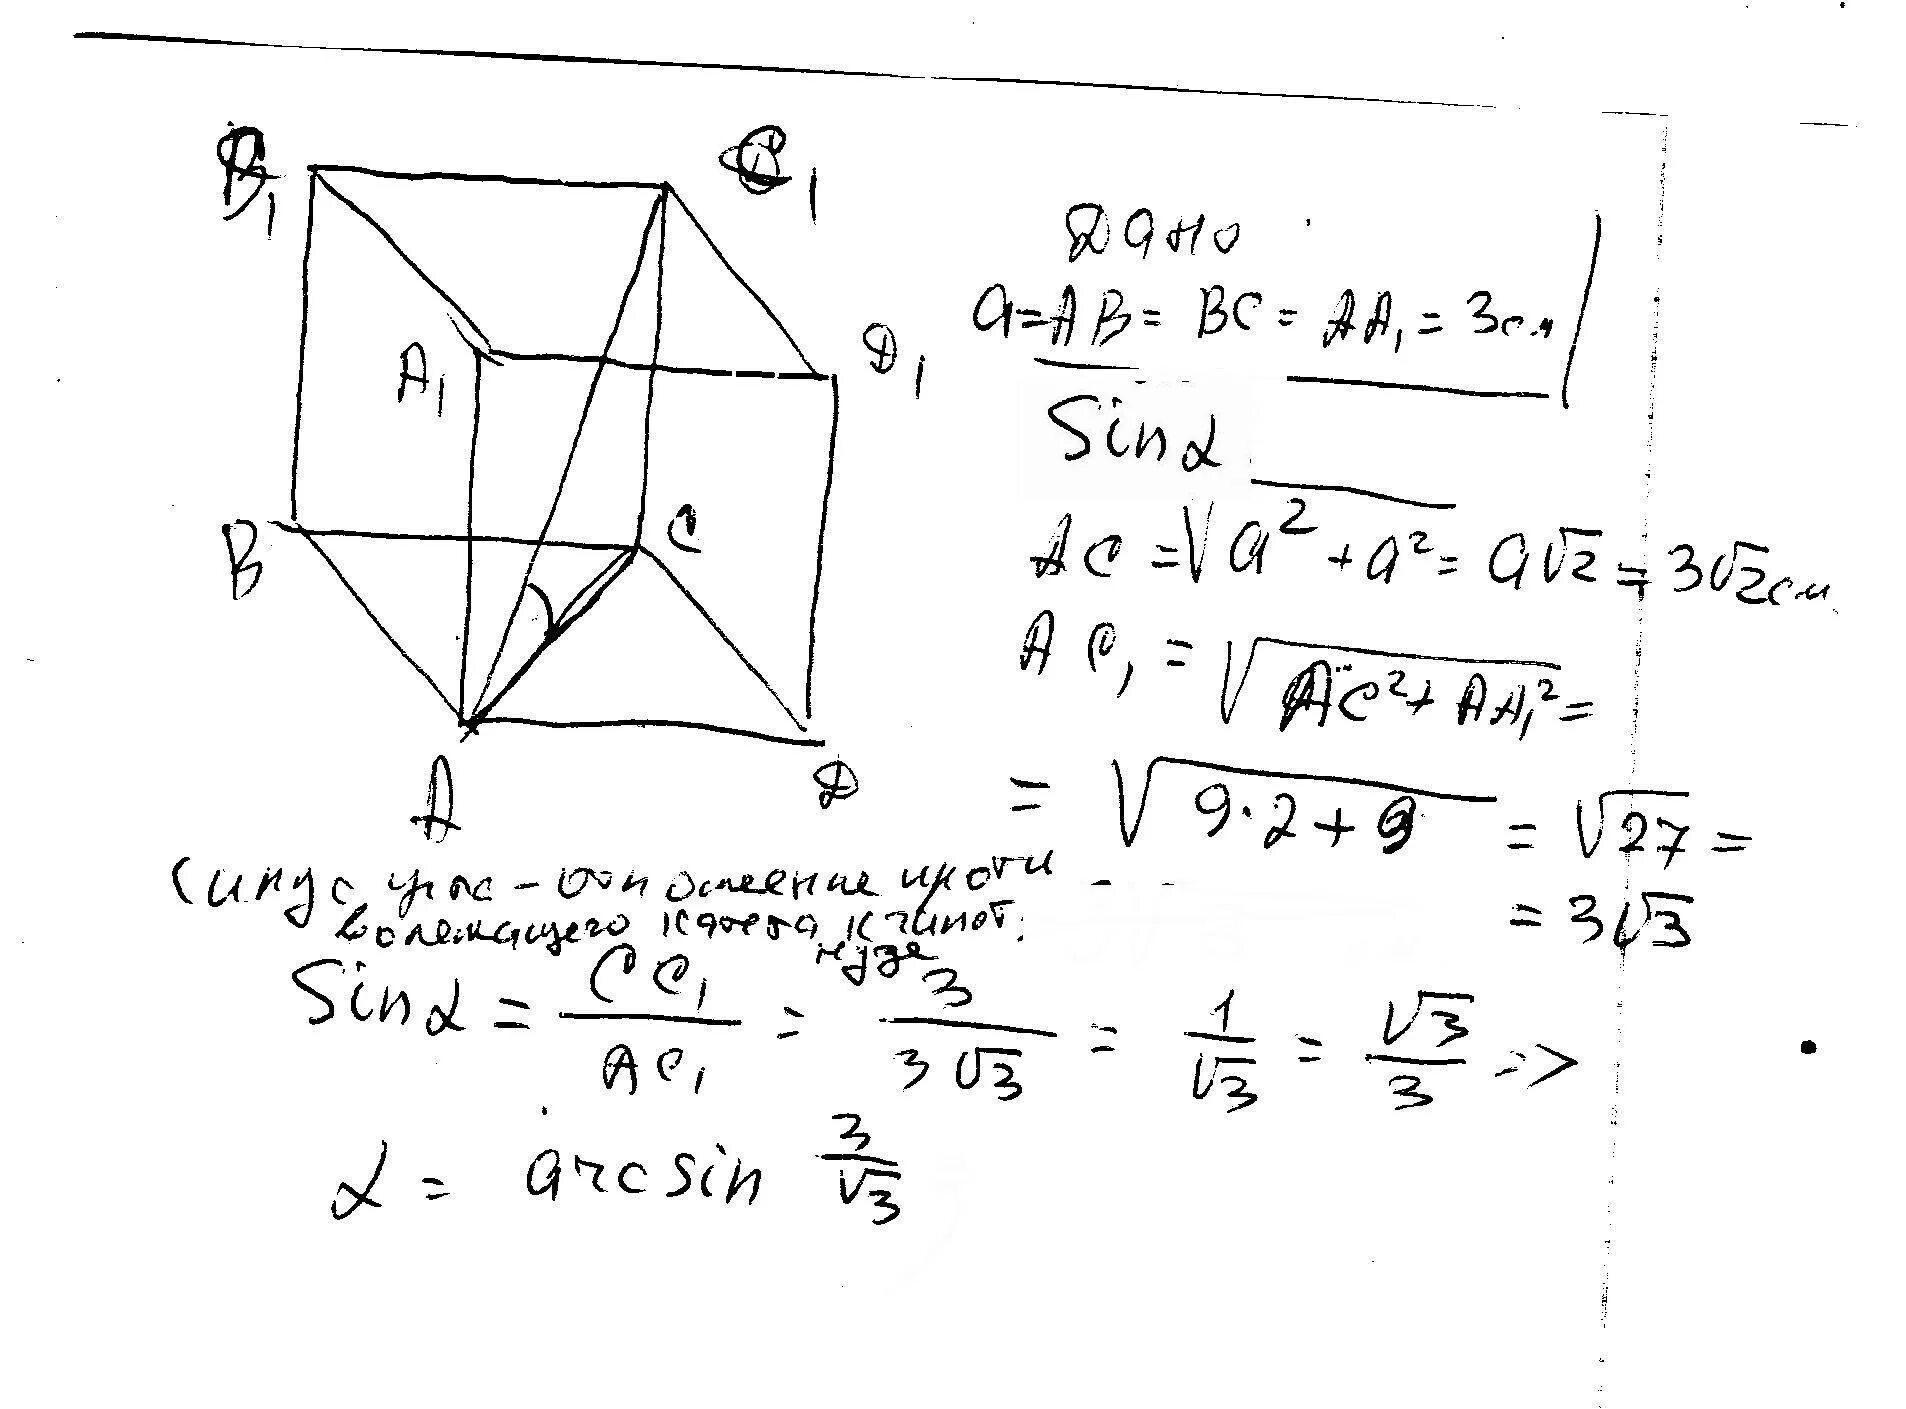 B₁
C₁
A₁
D₁
B
C
A
D
Дано
a = AB = BC = AA₁ = 3см
Sin α
AC = √(a² + a²) = a√2 = 3√2 см
AC₁ = √(AC² + AA₁²) =
= √(9·2 + 9) = √27 =
= 3√3
Синус угла - отношение проти
волежащего катета к гипот.
нузе
Sin α = CC₁/AC₁ = 3/(3√3) = 1/√3 = √3/3 =>
α = arcsin 3/√3